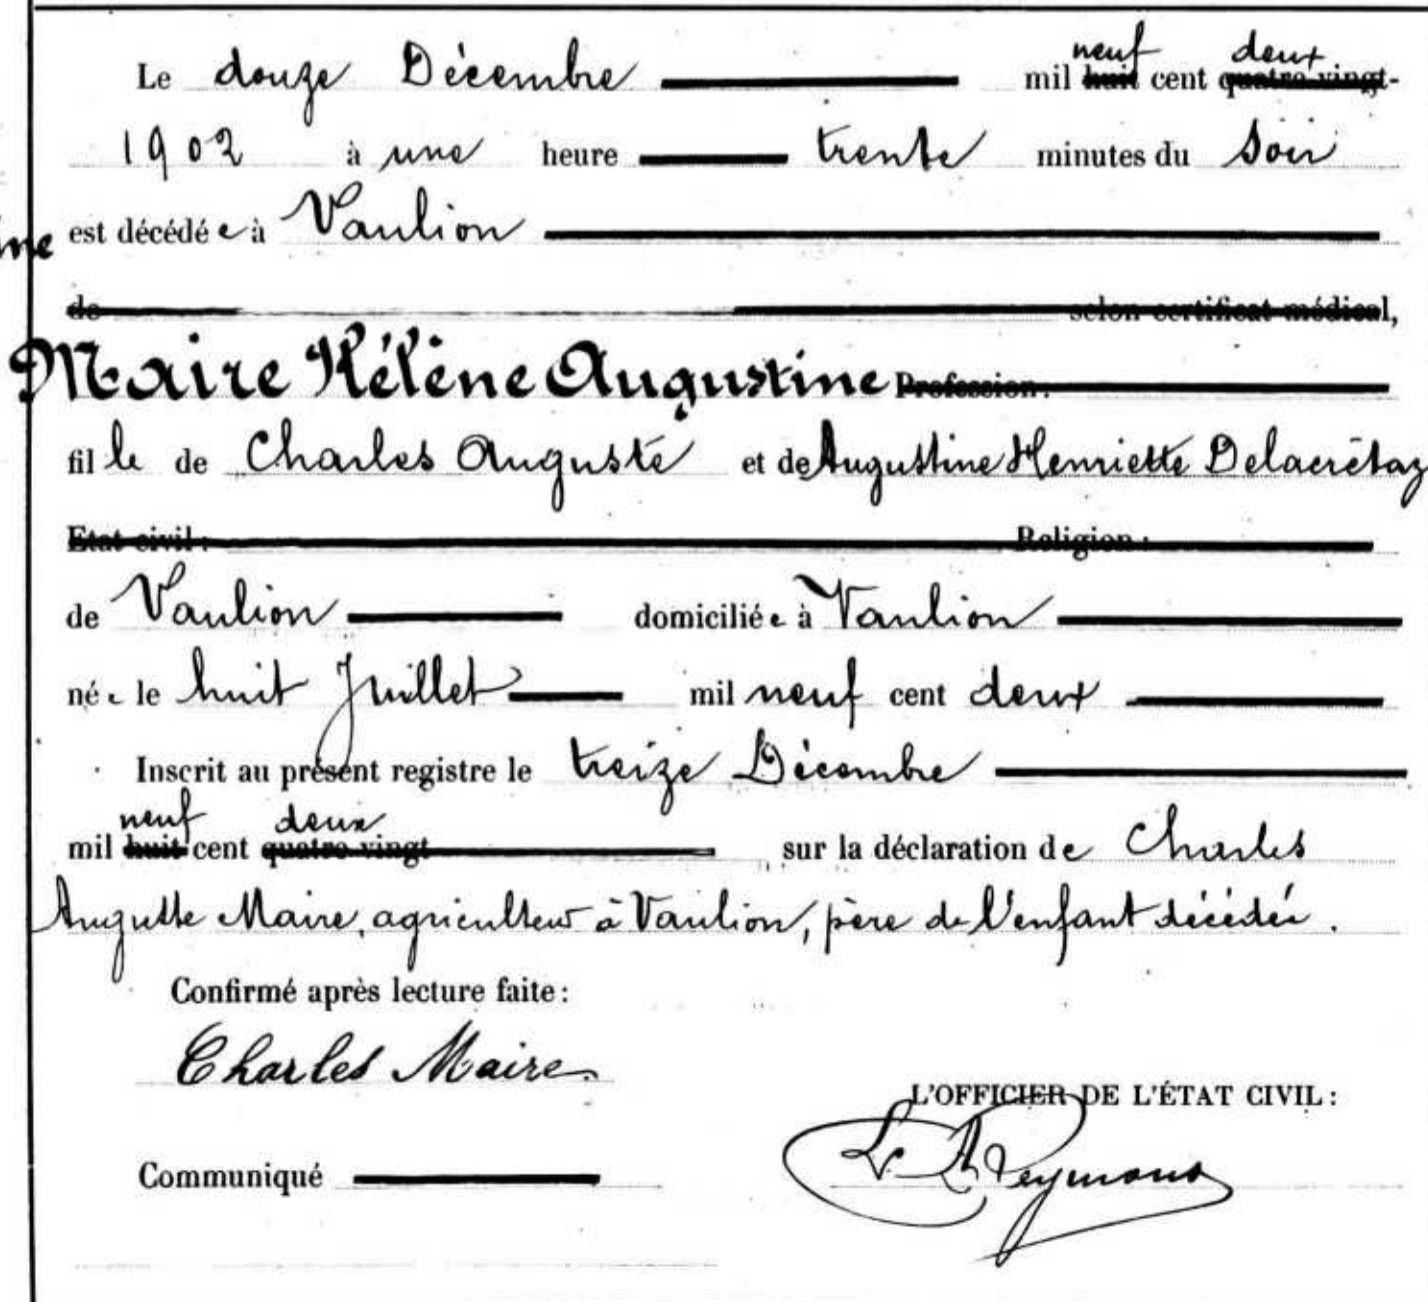 neuf deux
Le douze Décembre mil huit cent quatre-vingt-
1902 à une heure trente minutes du soir
ne est décédée à Vaulion
de selon certificat médical,
Maire Hélène Augustine Profession:
fille de Charles Auguste et de Augustine Henriette Delacrétaz
Etat civil: Religion:
de Vaulion domiciliée à Vaulion
née le huit Juillet mil neuf cent deux
Inscrit au présent registre le treize Décembre
neuf deux
mil huit cent quatre-vingt sur la déclaration de Charles
Auguste Maire, agriculteur à Vaulion, père de l'enfant décédée.
Confirmé après lecture faite:
Charles Maire
L'OFFICIER DE L'ÉTAT CIVIL:
Communiqué